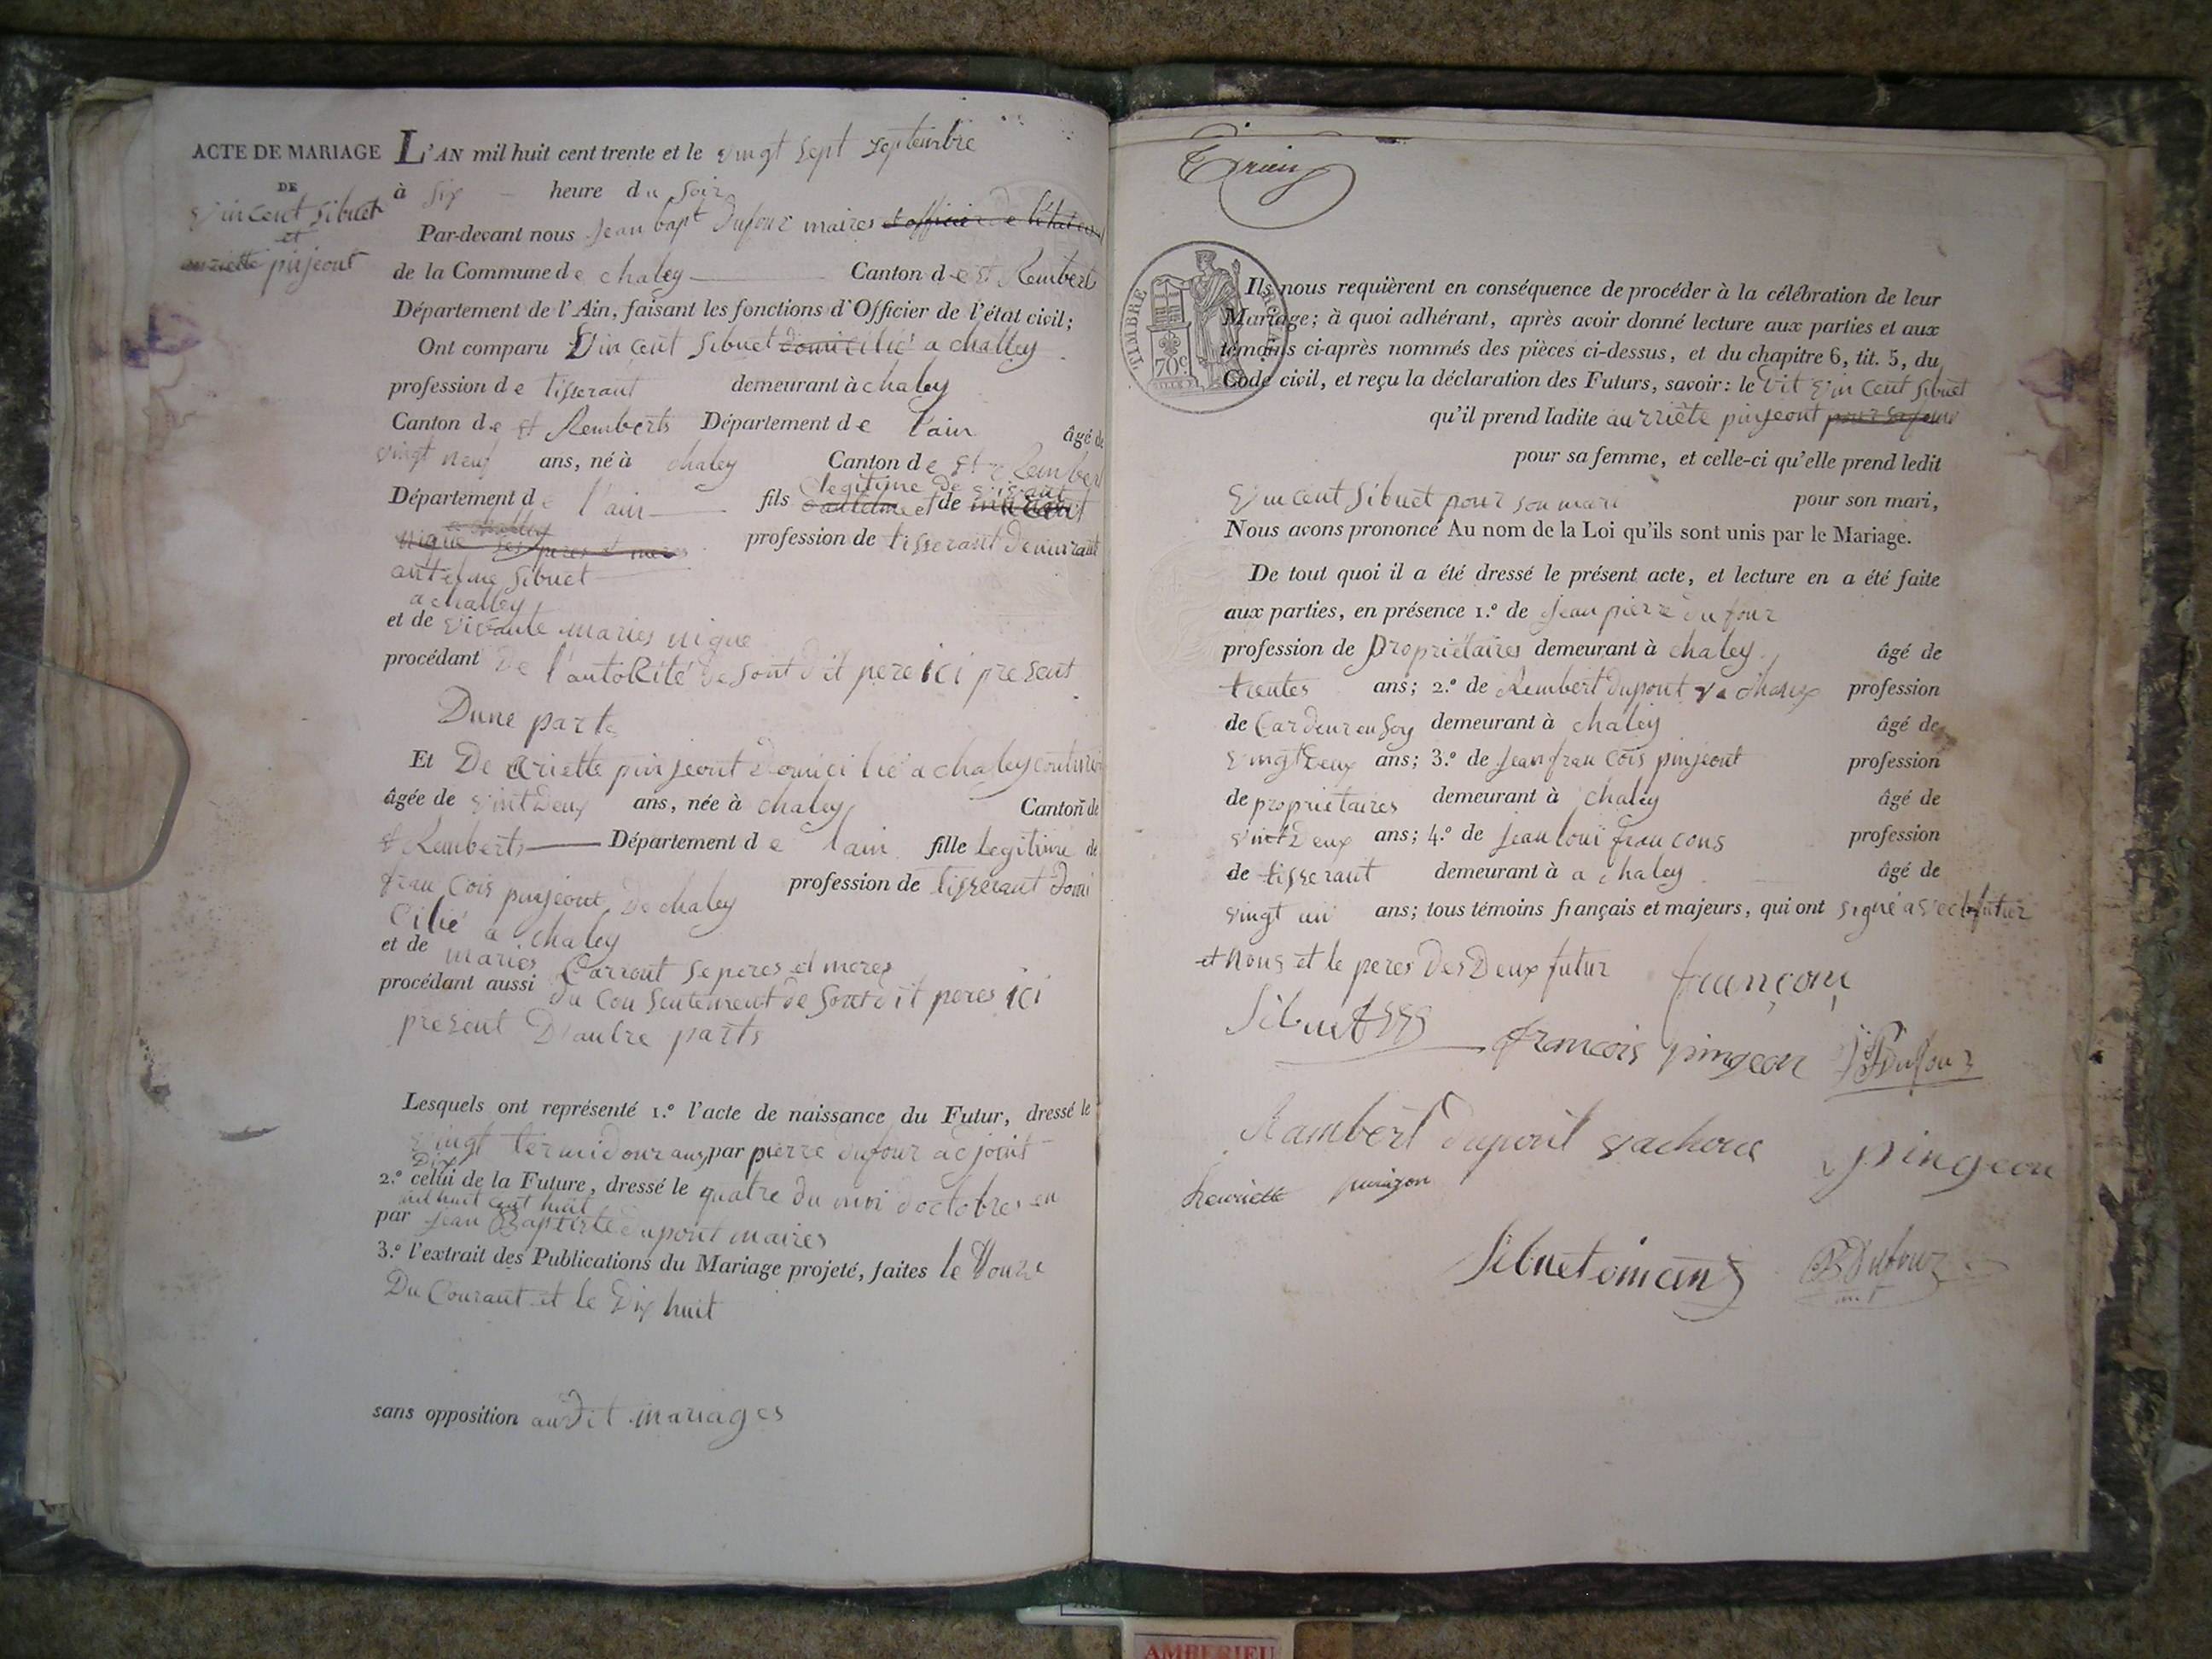 ACTE DE MARIAGE
DE
vincent sibuet
et
auriette pinjeont
L'AN mil huit cent trente et le vingt sept septembre
à six heure du soir
Par-devant nous jean bapt dufour maires et officier de l'état civ
de la Commune de chaley Canton de st Rembert
Département de l'Ain, faisant les fonctions d'Officier de l'état civil;
Ont comparu vin cent sibuet domicilié a challey
profession de tisserant demeurant à chaley
Canton de st Remberts Département de l'ain âgé de
vingt neuf ans, né à chaley Canton de st Rember
Département de l'ain fils legitime de vivant
antelme et de
nique a challey ses peres et meres profession de tisserant demurrant
antelme sibuet
a challey
et de vivante maries nique
procédant de l'autoRité de sont dit pere ici present
Dune parts
Et De ariette pinjeont domici lié a chaley
âgée de vint Deux ans, née à chaley Canton de
st Remberts Département de lain fille legitime de
fran cois pinjeont De chaley profession de tisserant domi
cilié a chaley
et de maries Carront se peres et meres
procédant aussi du con sentement de sont dit peres ici
present D'autre parts
Lesquels ont représenté 1.º l'acte de naissance du Futur, dressé le
vingt termidour an 9 par pierre dufour adjoint
Dix
2.º celui de la Future, dressé le quatre du moi doctobres en
mil huit cent huit
par jean Baptiste dupont maires
3.º l'extrait des Publications du Mariage projeté, faites le Douze
Du Courant et le Dix huit
sans opposition audit mariages
TIMBRE ROYAL
70c
Ils nous requièrent en conséquence de procéder à la célébration de leur
Mariage; à quoi adhérant, après avoir donné lecture aux parties et aux
témoins ci-après nommés des pièces ci-dessus, et du chapitre 6, tit. 5, du
Code civil, et reçu la déclaration des Futurs, savoir: le dit vin cent sibuet
qu'il prend ladite aurriète pinjeont pour sa femme
pour sa femme, et celle-ci qu'elle prend ledit
vin cent sibuet pour son mari pour son mari,
Nous avons prononcé Au nom de la Loi qu'ils sont unis par le Mariage.
De tout quoi il a été dressé le présent acte, et lecture en a été faite
aux parties, en présence 1.º de jean pierre dufour
profession de propriétaires demeurant à chaley âgé de
trentes ans; 2.º de Rembert dupont profession
de Cardeur en soy demeurant à chaley âgé de
vingt Deux ans; 3.º de jean fran cois pinjeont profession
de proprietaires demeurant à chaley âgé de
vint Deux ans; 4.º de jean loui fran cons profession
de tisserant demeurant à a chaley âgé de
vingt un ans; tous témoins français et majeurs, qui ont signé avec le futur
et nous et le peres des Deux futur françony
Sibuet
francois pingeon JP Dufour
Rambert dupont vachoux pingeon
henriette pinigon
Sibuet vincent JB Dufour
AMBERIEU